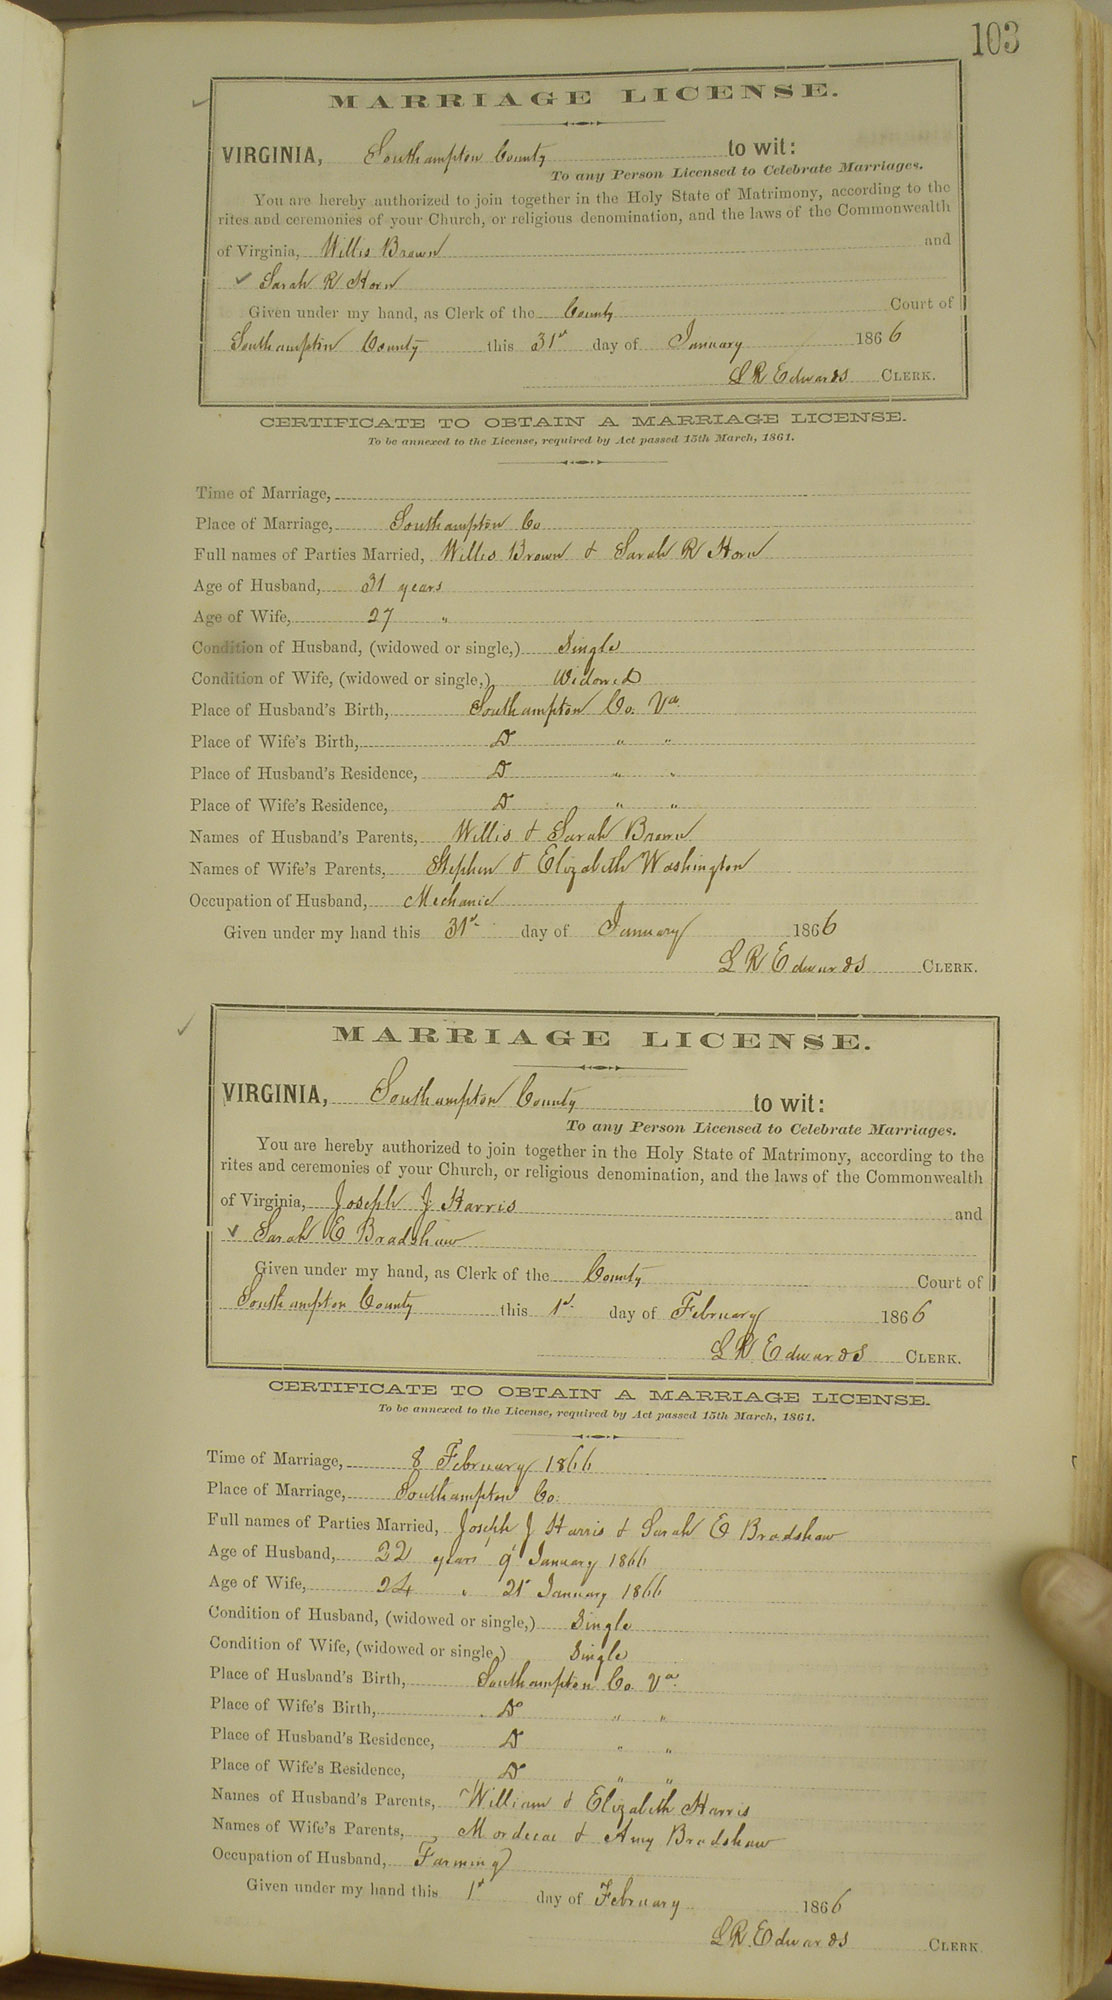 103
MARRIAGE LICENSE.
VIRGINIA, Southampton County to wit:
To any Person Licensed to Celebrate Marriages.
You are hereby authorized to join together in the Holy State of Matrimony, according to the
rites and ceremonies of your Church, or religious denomination, and the laws of the Commonwealth
of Virginia, Willis Brown and
✓ Sarah R Horn
Given under my hand, as Clerk of the County Court of
Southampton County this 31st day of January 1866
L R Edwards CLERK.
CERTIFICATE TO OBTAIN A MARRIAGE LICENSE.
To be annexed to the License, required by Act passed 15th March, 1861.
Time of Marriage,
Place of Marriage, Southampton Co
Full names of Parties Married, Willis Brown & Sarah R Horn
Age of Husband, 31 years
Age of Wife, 27 "
Condition of Husband, (widowed or single,) Single
Condition of Wife, (widowed or single,) Widowed
Place of Husband's Birth, Southampton Co. Va
Place of Wife's Birth, Do " "
Place of Husband's Residence, Do " "
Place of Wife's Residence, Do " "
Names of Husband's Parents, Willis & Sarah Brown
Names of Wife's Parents, Stephen & Elizabeth Washington
Occupation of Husband, Mechanic
Given under my hand this 31st day of January 1866
L R Edwards CLERK.
MARRIAGE LICENSE.
VIRGINIA, Southampton County to wit:
To any Person Licensed to Celebrate Marriages.
You are hereby authorized to join together in the Holy State of Matrimony, according to the
rites and ceremonies of your Church, or religious denomination, and the laws of the Commonwealth
of Virginia, Joseph J Harris and
✓ Sarah E Bradshaw
Given under my hand, as Clerk of the County Court of
Southampton County this 1st day of February 1866
L R Edwards CLERK.
CERTIFICATE TO OBTAIN A MARRIAGE LICENSE.
To be annexed to the License, required by Act passed 15th March, 1861.
Time of Marriage, 8 February 1866
Place of Marriage, Southampton Co.
Full names of Parties Married, Joseph J Harris & Sarah E Bradshaw
Age of Husband, 22 years 9 January 1866
Age of Wife, 24 " 21st January 1866
Condition of Husband, (widowed or single,) Single
Condition of Wife, (widowed or single,) Single
Place of Husband's Birth, Southampton Co. Va.
Place of Wife's Birth, Do " "
Place of Husband's Residence, Do " "
Place of Wife's Residence, Do " "
Names of Husband's Parents, William & Elizabeth Harris
Names of Wife's Parents, Mordecai & Amy Bradshaw
Occupation of Husband, Farming
Given under my hand this 1st day of February 1866
L R. Edwards CLERK.